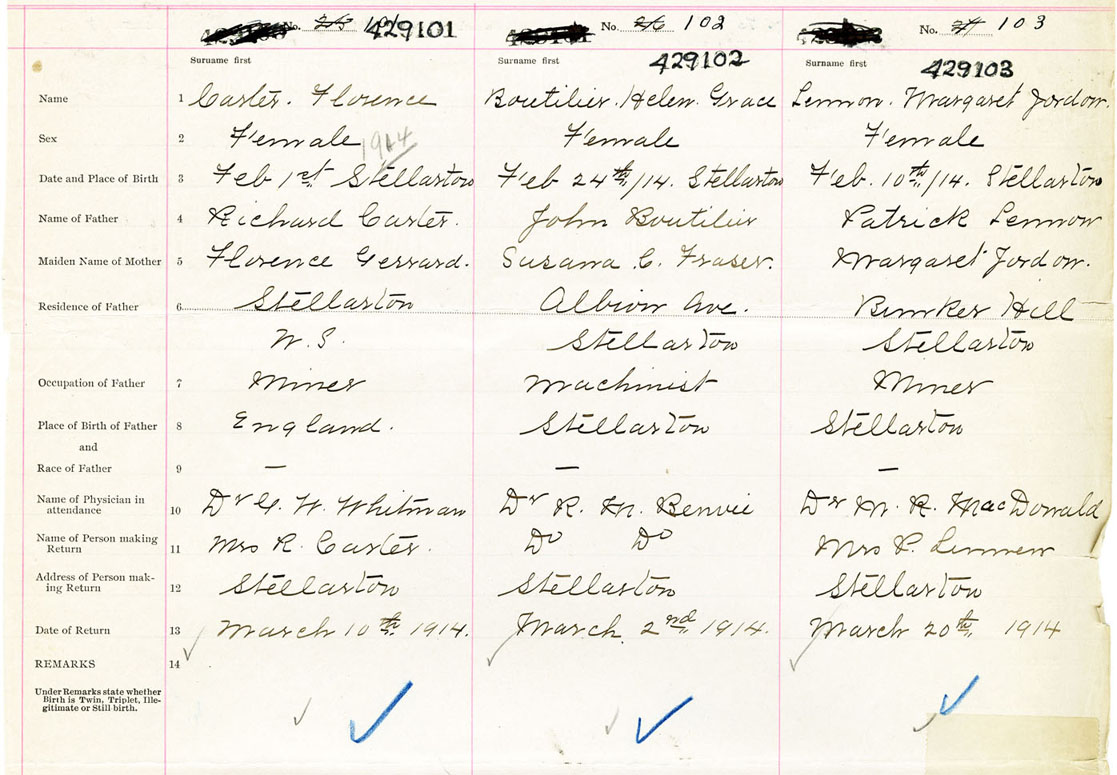 No. 101 No. 102 No. 103
429101 429102 429103
Surname first Surname first Surname first
Name 1 Carter. Florence Boutilier. Helen. Grace Lennon. Margaret Jordon.
Sex 2 Female Female Female
1914
Date and Place of Birth 3 Feb 1st. Stellarton Feb 24th/14. Stellarton Feb. 10th/14. Stellarton
Name of Father 4 Richard Carter. John Boutilier Patrick Lennon
Maiden Name of Mother 5 Florence Gerrard. Susana C. Fraser. Margaret Jordon.
Residence of Father 6 Stellarton Albion Ave. Bunker Hill
N.S. Stellarton Stellarton
Occupation of Father 7 Miner Machinist Miner
Place of Birth of Father 8 England. Stellarton Stellarton
and
Race of Father 9 — — —
Name of Physician in
attendance 10 Dr G. W. Whitman Dr R. M. Benvie Dr M. R. MacDonald
Name of Person making
Return 11 Mrs R. Carter. Do Do Mrs P. Lennon
Address of Person mak-
ing Return 12 Stellarton Stellarton Stellarton
Date of Return 13 March 10th. 1914. March. 2nd. 1914. March 20th. 1914
REMARKS 14
Under Remarks state whether
Birth is Twin, Triplet, Ille-
gitimate or Still birth.